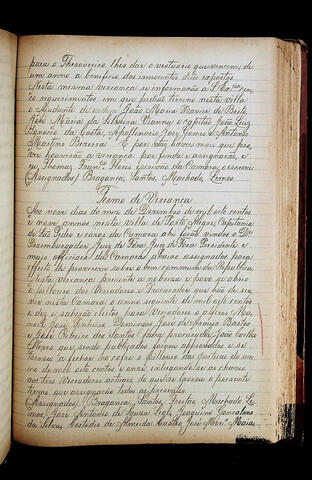 para o Thesoureiro lhes dar o vestuario que vencem, de
um anno a beneficio dos innocentes ditos expostos
Nesta mesma vereança se informarão a S. Exª. cin
co requerimentos em que pedião terreno nesta villa
o Ajudante de ordens João Maria Xavier de Brito,
Rosa Maria da Silveira Vianna, o capitão João Luiz
da Costa, Apollinario José Gomes e Antonio
Martins Bezerra. E por não haver mais que pro
ver houverão a vereança por finda e assignarão, e
eu Thomaz Franco Flores escrivão da Camara o escrevi
(Assignados) Bragança, Santos, Machado, Lemos.
Termo de Vereança
Aos nove dias do mez de Dezembro de mil oito centos
e nove annos nesta villa de Porto Alegre, Capitania
de São Pedro e casas da Camara ahi forão vindos o Dr.
Desembargador Juiz de Fóra Juiz de Fóra Presidente e
mais officiaes da Camara abaixo assignados para
effeito de proverem sobre o bem commum da Republica
Nesta vereança presente a nobreza e povo se abrio
o pilloiro dos Vereadores e Procurador que hão de ser
vir nesta Camara o anno seguinte de mil oito centos
e dez e sahirão eleitos para Vereadores o alferes Ma
noel José Domingos José de Araujo Bastos
e José Ribeiro dos Santos e para procurador João Coelho
Neves que sendo publicados forão approvados e se
tornou a fechar no cofre o pilloiro das justiças do an
no de mil oito centos e onze entregando-se as chaves
aos tres Vereadores actuaes, de que se lavrou o presente
termo que assignarão todos os presentes
(Assignados) Bragança, Santos, Freitas, Machado, Le
mos, José Antonio de Souza Leal, Joaquim Gonçalves
da Silva, Custodio de Almeida Castro, José